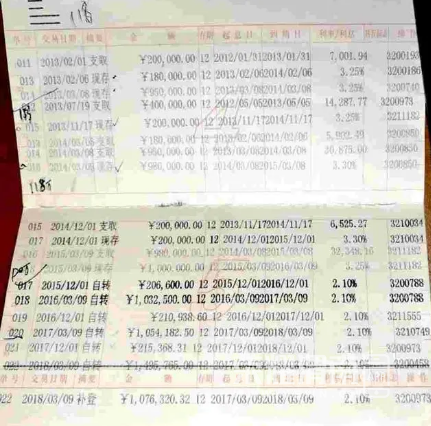 118
序号 交易日期 摘要 金 额 存期 起息日 到期日 利率/利息 操作
011 2013/02/01 支取 ¥200,000.00 12 2012/01/31 2013/01/31 7,001.94 3200193
013 2013/02/06 现存 ¥180,000.00 12 2013/02/06 2014/02/06 3.25% 3200186
014 2013/03/08 现存 ¥950,000.00 12 2013/03/08 2014/03/08 3.25% 3200740
2013/07/19 支取 ¥400,000.00 12 2012/05/05 2013/05/05 14,287.77 3200973
015 2013/11/17 现存 ¥200,000.00 12 2013/11/17 2014/11/17 3.25% 3211182
¥180,000.00 12 2013/02/06 2014/02/06 3200850
2014/03/08 支取 ¥950,000.00 12 2013/03/08 2014/03/08 30,875.00 3200850
016 2014/03/08 现存 ¥980,000.00 12 2014/03/08 2015/03/08 3.30% 3200850
015 2014/12/01 支取 ¥200,000.00 12 2013/11/17 2014/11/17 6,525.27 3210034
017 2014/12/01 现存 ¥200,000.00 12 2014/12/01 2015/12/01 3.30% 3210034
016 2015/03/09 支取 ¥980,000.00 12 2014/03/08 2015/03/08 3211182
2015/03/09 现存 ¥1,000,000.00 12 2015/03/09 2016/03/09 3211182
017 2015/12/01 自转 ¥206,600.00 12 2015/12/01 2016/12/01 2.10% 3200788
018 2016/03/09 自转 ¥1,032,500.00 12 2016/03/09 2017/03/09 2.10% 3200788
019 2016/12/01 自转 ¥210,938.60 12 2016/12/01 2017/12/01 2.10% 3211555
020 2017/03/09 自转 ¥1,054,182.50 12 2017/03/09 2018/03/09 2.10% 3210749
021 2017/12/01 自转 ¥215,368.31 12 2017/12/01 2018/12/01 2.10% 3200973
2018/03/09 自转 2.10% 3200458
序号 交易日期 摘要 金 额 存期 起息日 到期日 利率/利息 操作
022 2018/03/09 补登 ¥1,076,320.32 12 2017/03/09 2018/03/09 2.10% 3200973